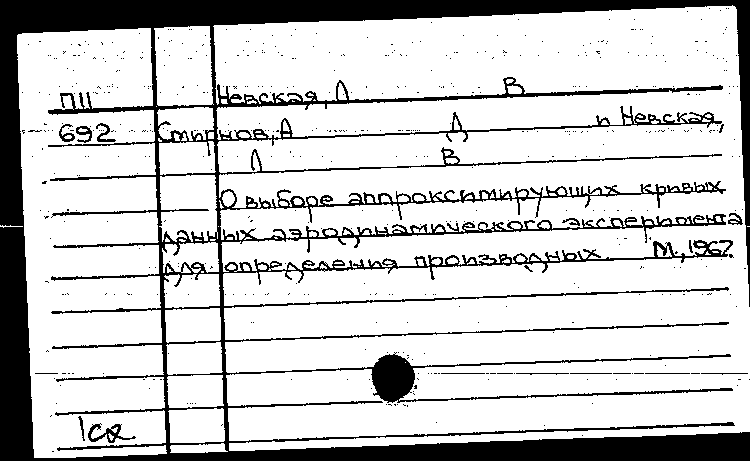 П11 Невская, Л В
692 Смирнов, А Д и Невская,
Л В
О выборе аппроксимирующих кривых
данных аэродинамического эксперимента
для определения производных. М., 1967.
1сл